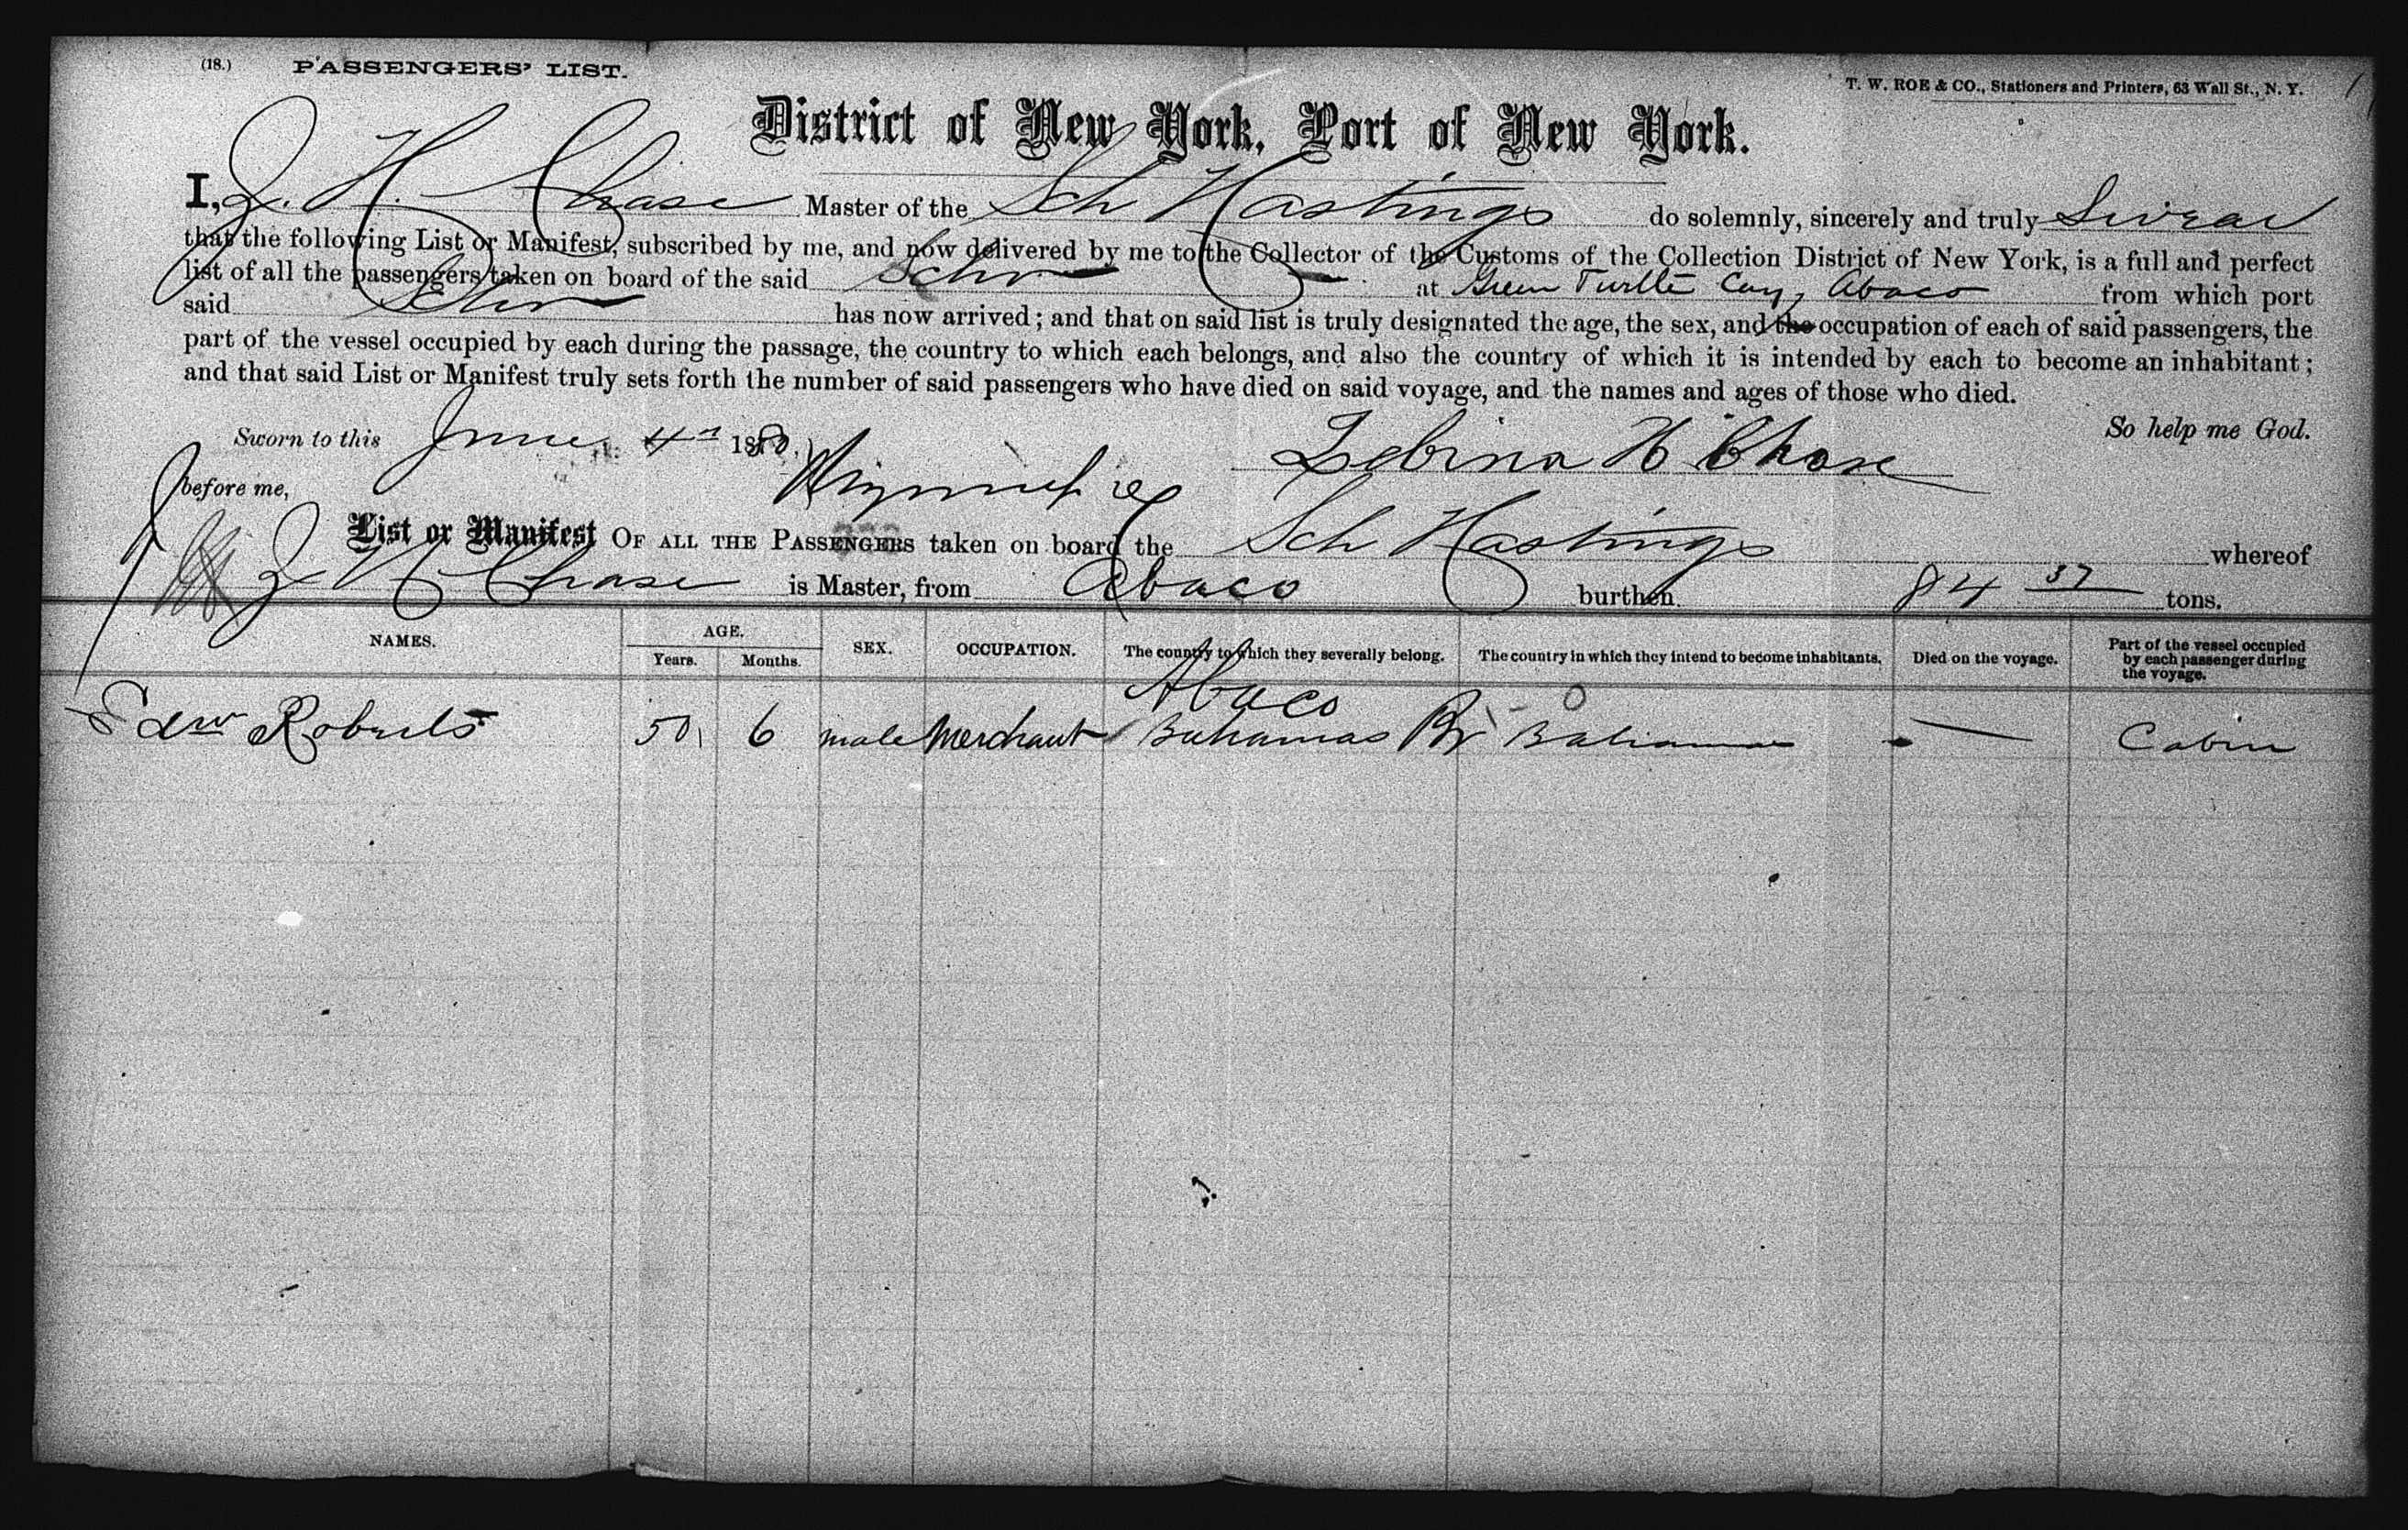 (18.) PASSENGERS' LIST.
T. W. ROE & CO., Stationers and Printers, 63 Wall St., N. Y.
District of New York, Port of New York.
I, Z. H. Chase Master of the Sch Hastings do solemnly, sincerely and truly Swear
that the following List or Manifest, subscribed by me, and now delivered by me to the Collector of the Customs of the Collection District of New York, is a full and perfect
list of all the passengers taken on board of the said Schr at Green Turtle Cay, Abaco from which port
said Schr has now arrived; and that on said list is truly designated the age, the sex, and the occupation of each of said passengers, the
part of the vessel occupied by each during the passage, the country to which each belongs, and also the country of which it is intended by each to become an inhabitant;
and that said List or Manifest truly sets forth the number of said passengers who have died on said voyage, and the names and ages of those who died.
So help me God.
Sworn to this June 4 1880,
Zebina H Chase
before me,
List or Manifest OF ALL THE PASSENGERS taken on board the Sch Hastings whereof
Z H Chase is Master, from Abaco burthen 84 37 tons.
NAMES. AGE. Years. Months. SEX. OCCUPATION. The country to which they severally belong. The country in which they intend to become inhabitants. Died on the voyage. Part of the vessel occupied by each passenger during the voyage.
Abaco
Edw Roberts 50 6 male Merchant Bahamas Br Bahamas — Cabin